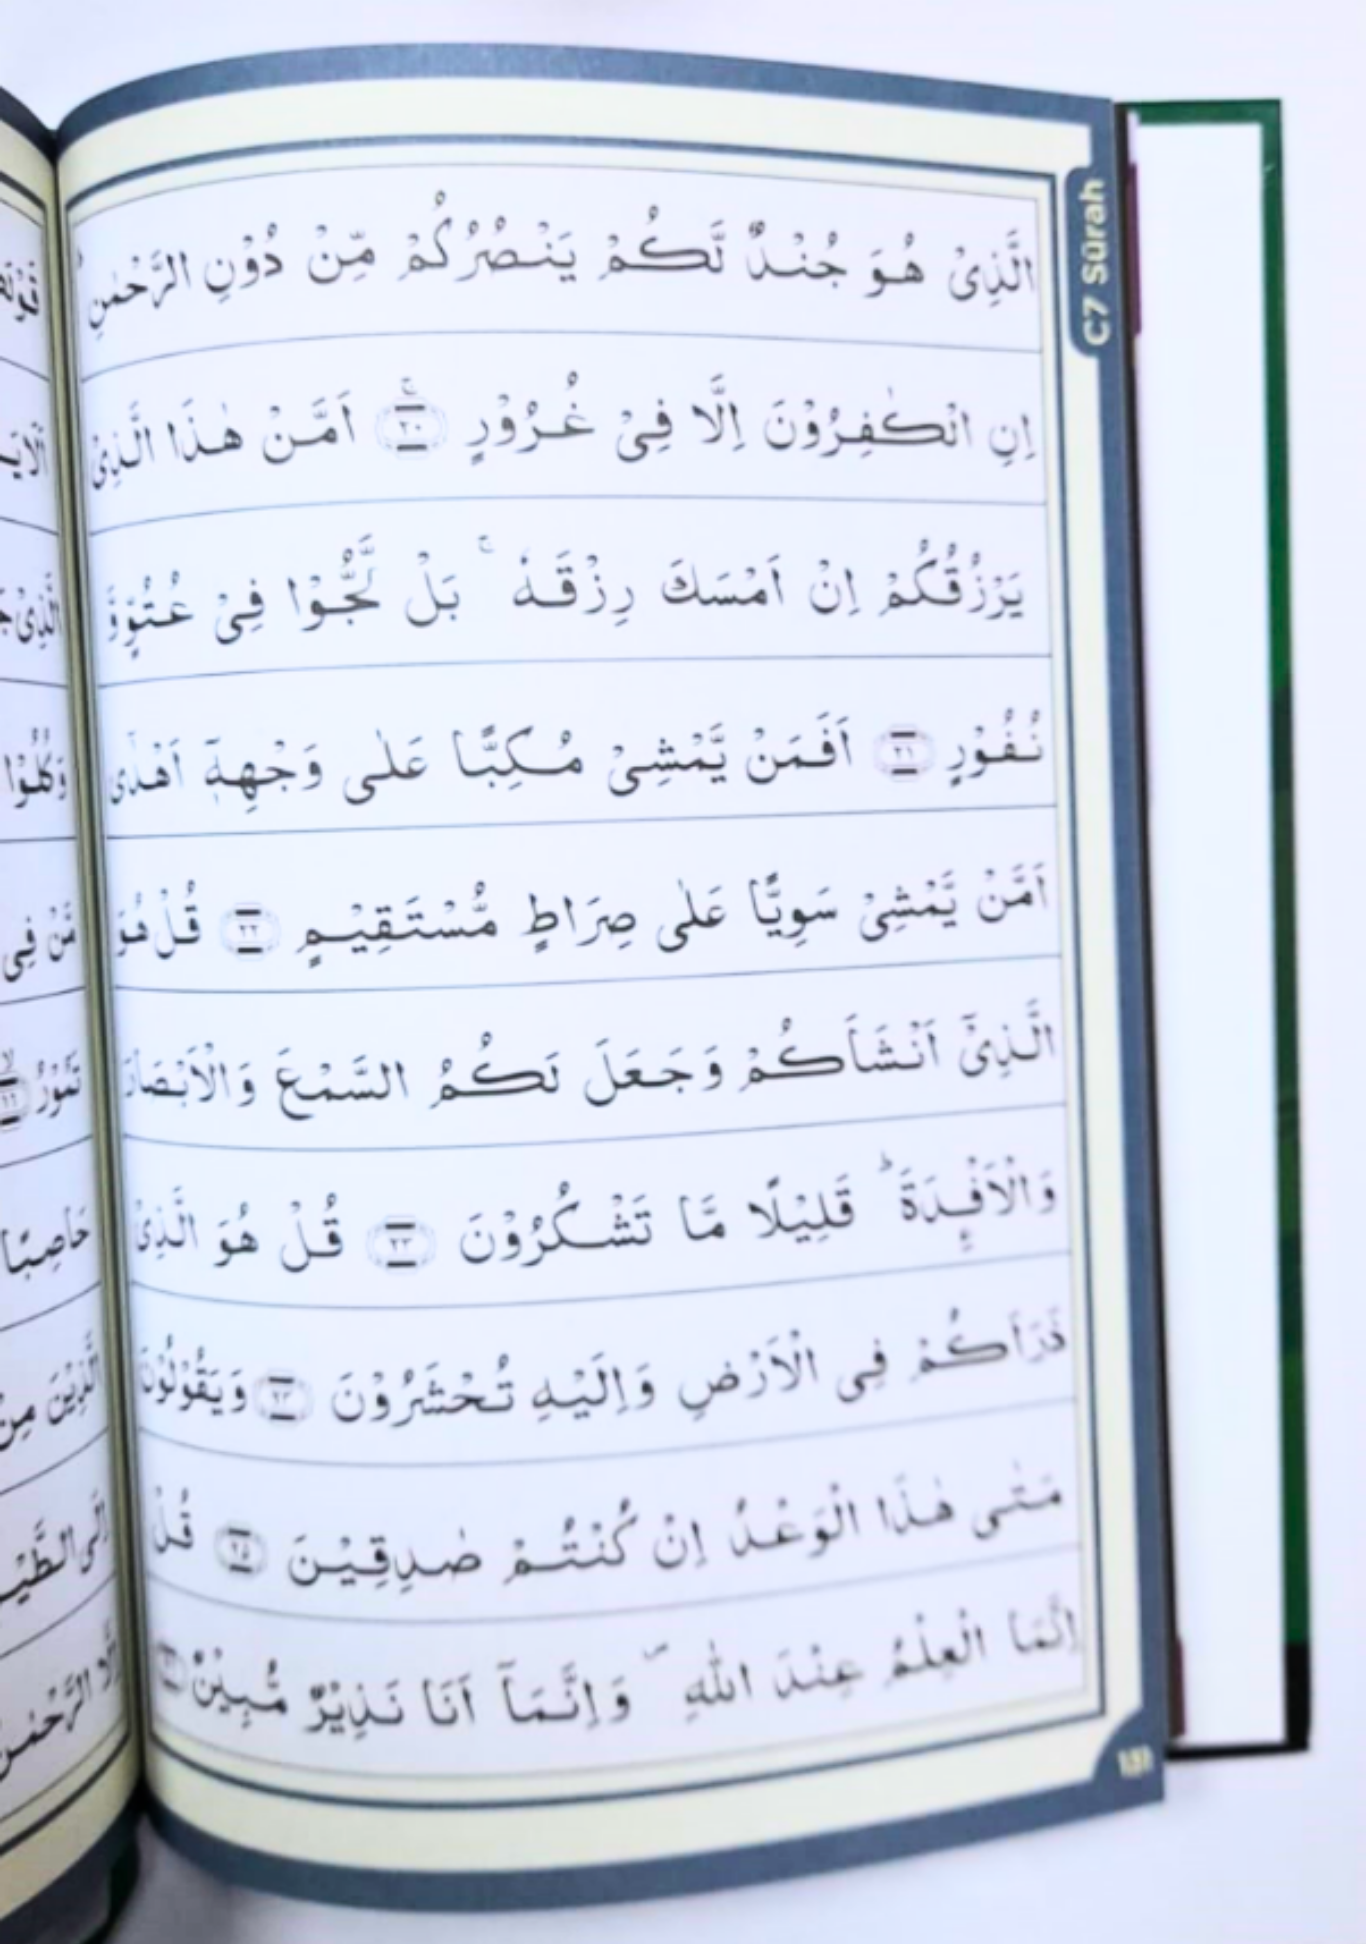 الَّذِىْ هُوَ جُنْدٌ لَّكُمْ يَنْصُرُكُمْ مِّنْ دُوْنِ الرَّحْمٰنِ
اِنِ الْكٰفِرُوْنَ اِلَّا فِىْ غُرُوْرٍ ۚ ٢٠ اَمَّنْ هٰذَا الَّذِىْ
يَرْزُقُكُمْ اِنْ اَمْسَكَ رِزْقَهٗ ۚ بَلْ لَّجُّوْا فِىْ عُتُوٍّ وَّ
نُفُوْرٍ ٢١ اَفَمَنْ يَّمْشِىْ مُكِبًّا عَلٰى وَجْهِهٖٓ اَهْدٰٓى
اَمَّنْ يَّمْشِىْ سَوِيًّا عَلٰى صِرَاطٍ مُّسْتَقِيْمٍ ٢٢ قُلْ هُوَ
الَّذِىْٓ اَنْشَاَكُمْ وَجَعَلَ لَكُمُ السَّمْعَ وَالْاَبْصَارَ
وَالْاَفْـِٕدَةَ ؕ قَلِيْلًا مَّا تَشْكُرُوْنَ ٢٣ قُلْ هُوَ الَّذِىْ
ذَرَاَكُمْ فِى الْاَرْضِ وَاِلَيْهِ تُحْشَرُوْنَ ٢٤ وَيَقُوْلُوْنَ
مَتٰى هٰذَا الْوَعْدُ اِنْ كُنْتُمْ صٰدِقِيْنَ ٢٥ قُلْ
اِنَّمَا الْعِلْمُ عِنْدَ اللّٰهِ ۖ وَاِنَّمَآ اَنَا نَذِيْرٌ مُّبِيْنٌ
C7 Sûrah
الَّذِىْ
وَكُلُوْا
مَّنْ فِى
تَمُوْرُ
حَاصِبًا
الَّذِيْنَ مِنْ
اِلَّا الرَّحْمٰنُ